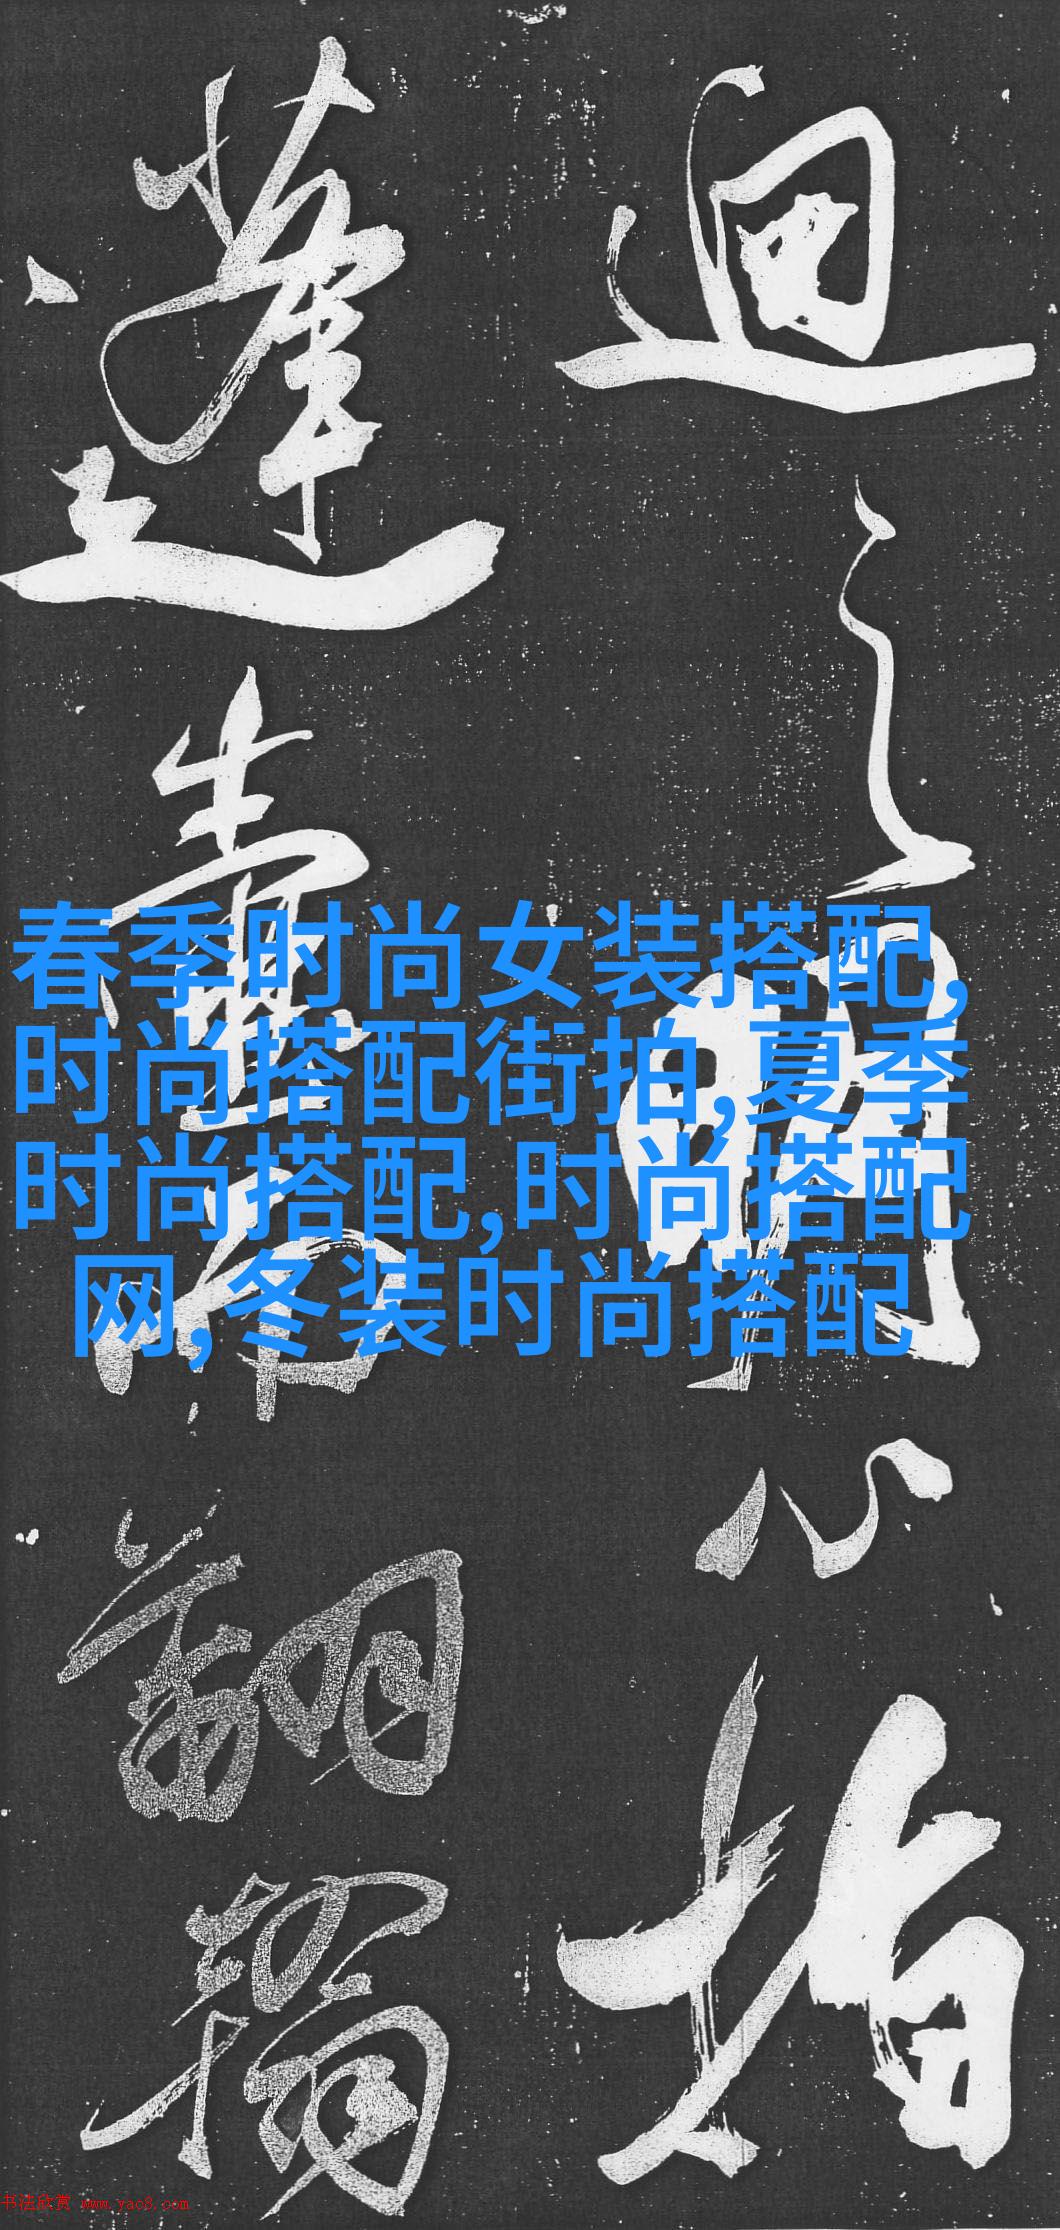 春季时尚女装搭配,
时尚搭配街拍,夏季
时尚搭配,时尚搭配
网,冬装时尚搭配
迴之指
蓬翻
书法欣赏 www.yac8.com